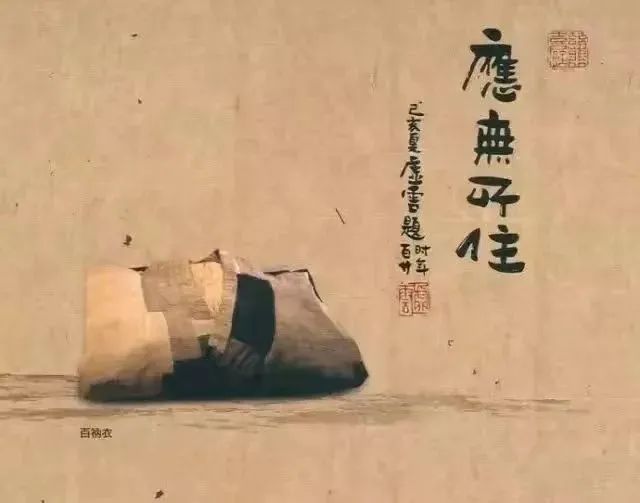 應無所住
己亥夏虛雲題
时年
百廿
百衲衣